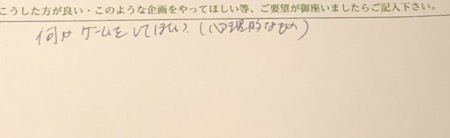 こうした方が良い・このような企画をやってほしい等、ご要望が御座いましたらご記入下さい。
何か ゲームをしてほしい (心理的なもの)